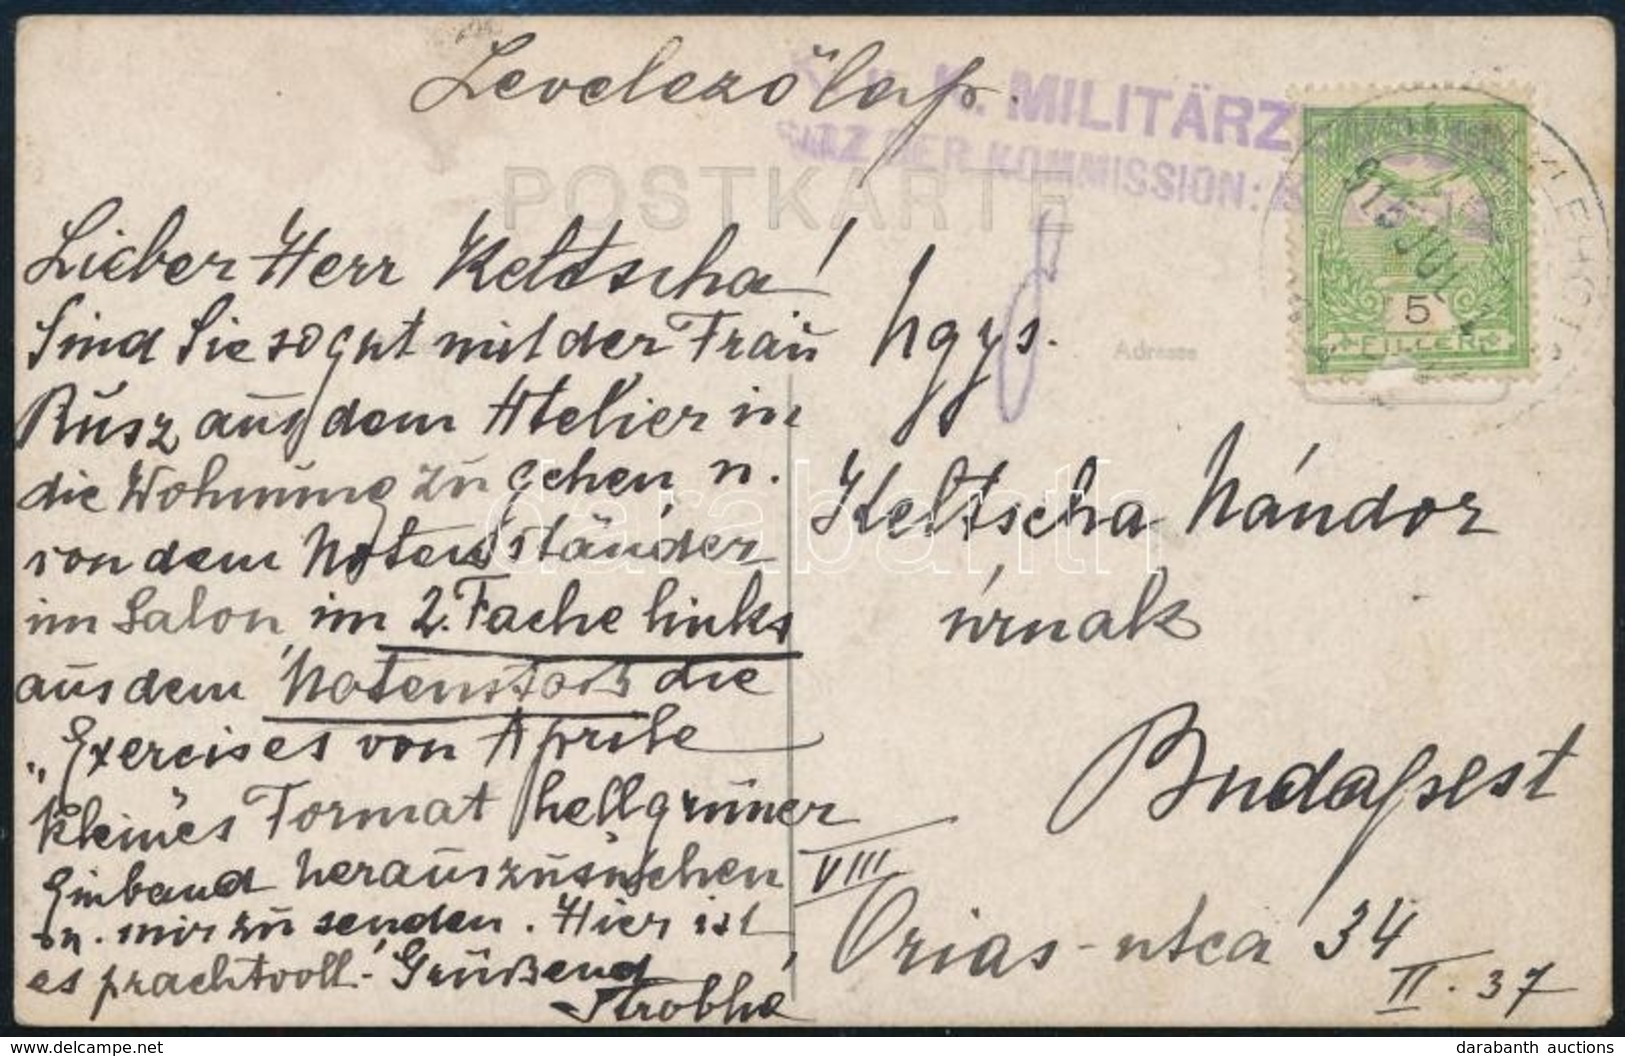 Levelezőlap.
K. u. K. MILITÄRZ
SITZ DER KOMMISSION:
POSTKARTE
Adresse
915 JUL
5
FILLER
Lieber Herr Keltscha!
Sind Sie so gut mit der Frau
Rusz aus dem Atelier in
die Wohnung zu gehen, u.
von dem Notenständer
im Salon, im 2. Fache links
aus dem Notenstock die
„Exercises von Aprile
kleines Format hellgrüner
Einband herauszusuchen
u. mir zu senden. Hier ist
es prachtvoll. Grüßend
Hgys.
Keltscha Nándor
úrnak
Budapest
VIII
Orias-utca 34
II. 37
darabanth
darabanth auctions
www.delcampe.net